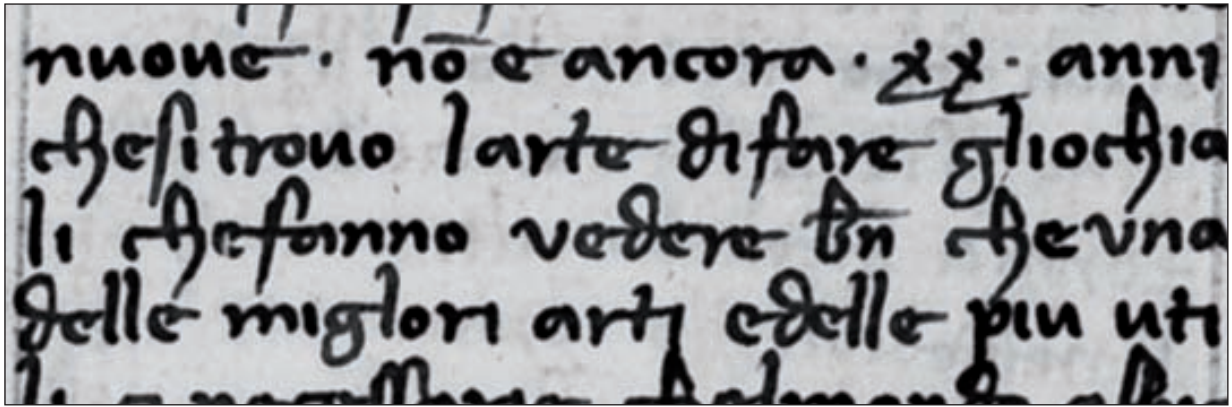 nuove · nō e ancora · xx · anni
che si trovo larte di fare gliochia
li che fanno vedere bn̄ che vna
delle miglori arti e delle piu uti